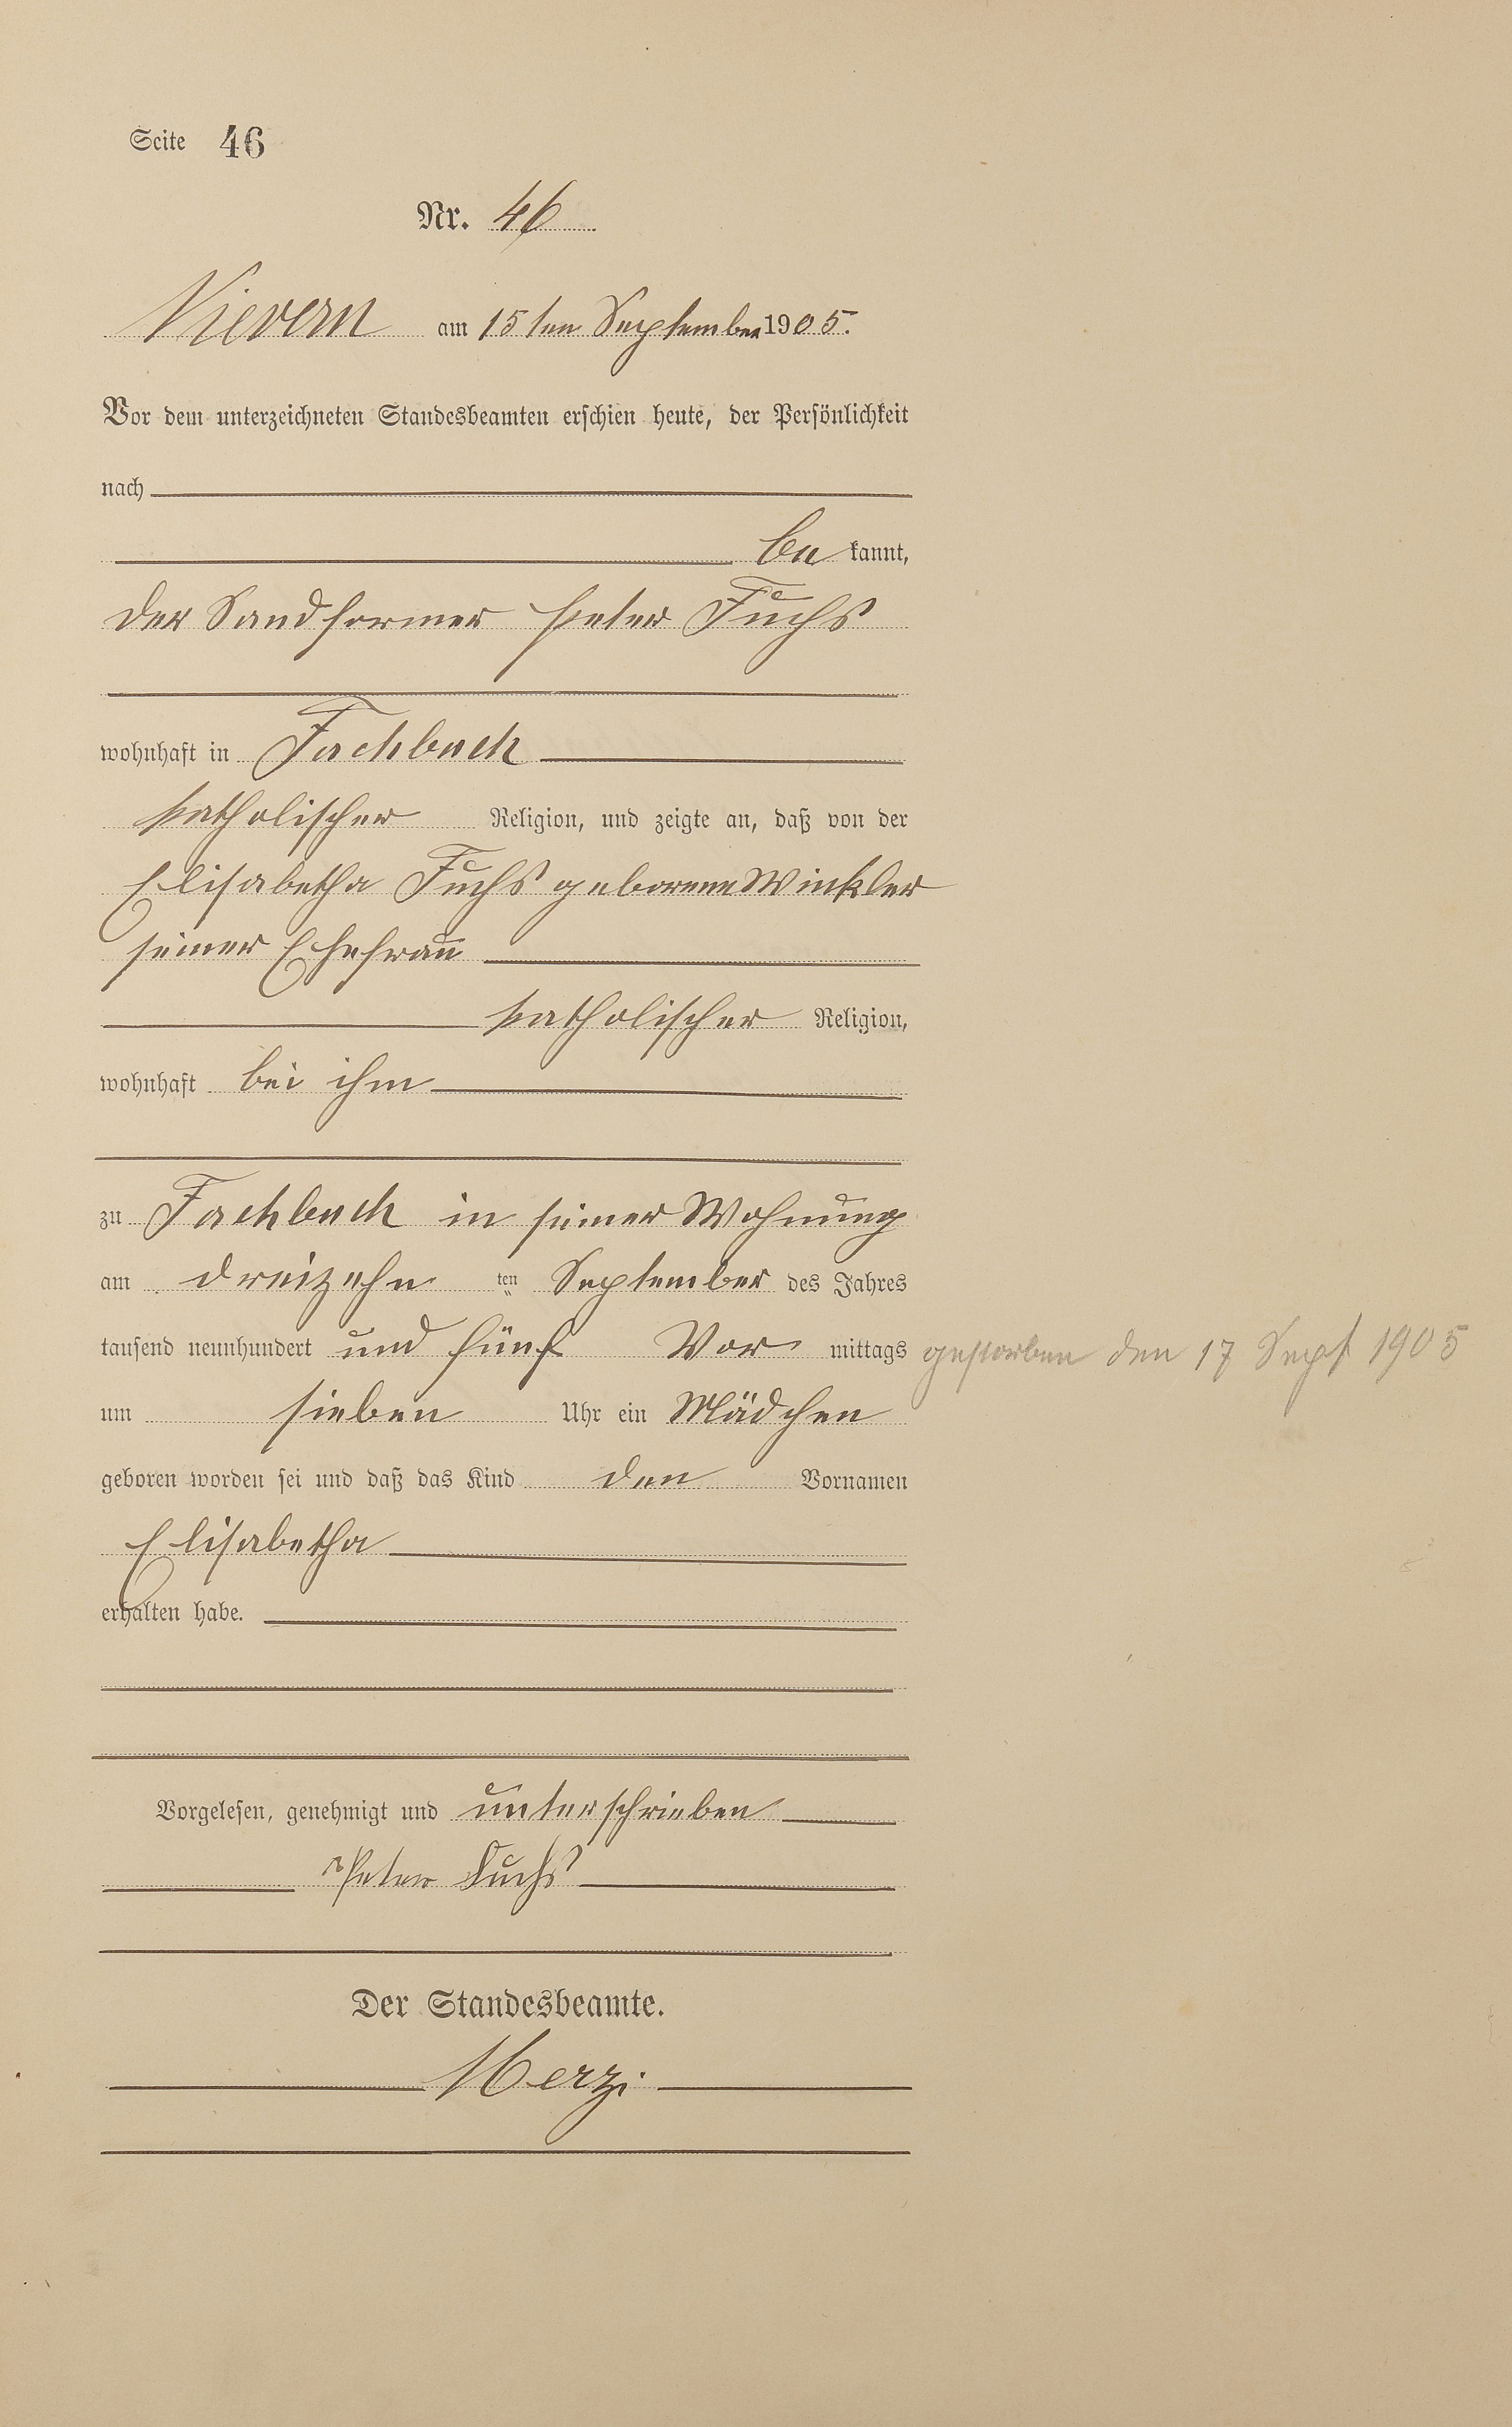 Seite 46
Nr. 46
Nievern am 15ten September 1905.
Vor dem unterzeichneten Standesbeamten erschien heute, der Persönlichkeit
nach
be kannt,
der Sandformer Peter Fuchs
wohnhaft in Fachbach
katholischer Religion, und zeigte an, daß von der
Elisabetha Fuchs geborene Winkler
seiner Ehefrau
katholischer Religion,
wohnhaft bei ihm
zu Fachbach in seiner Wohnung
am dreizehn ten September des Jahres
tausend neunhundert und fünf Vor mittags
gestorben den 17 Sept 1905
um sieben Uhr ein Mädchen
geboren worden sei und daß das Kind den Vornamen
Elisabetha
erhalten habe.
Vorgelesen, genehmigt und unterschrieben
Peter Fuchs
Der Standesbeamte.
Merzi